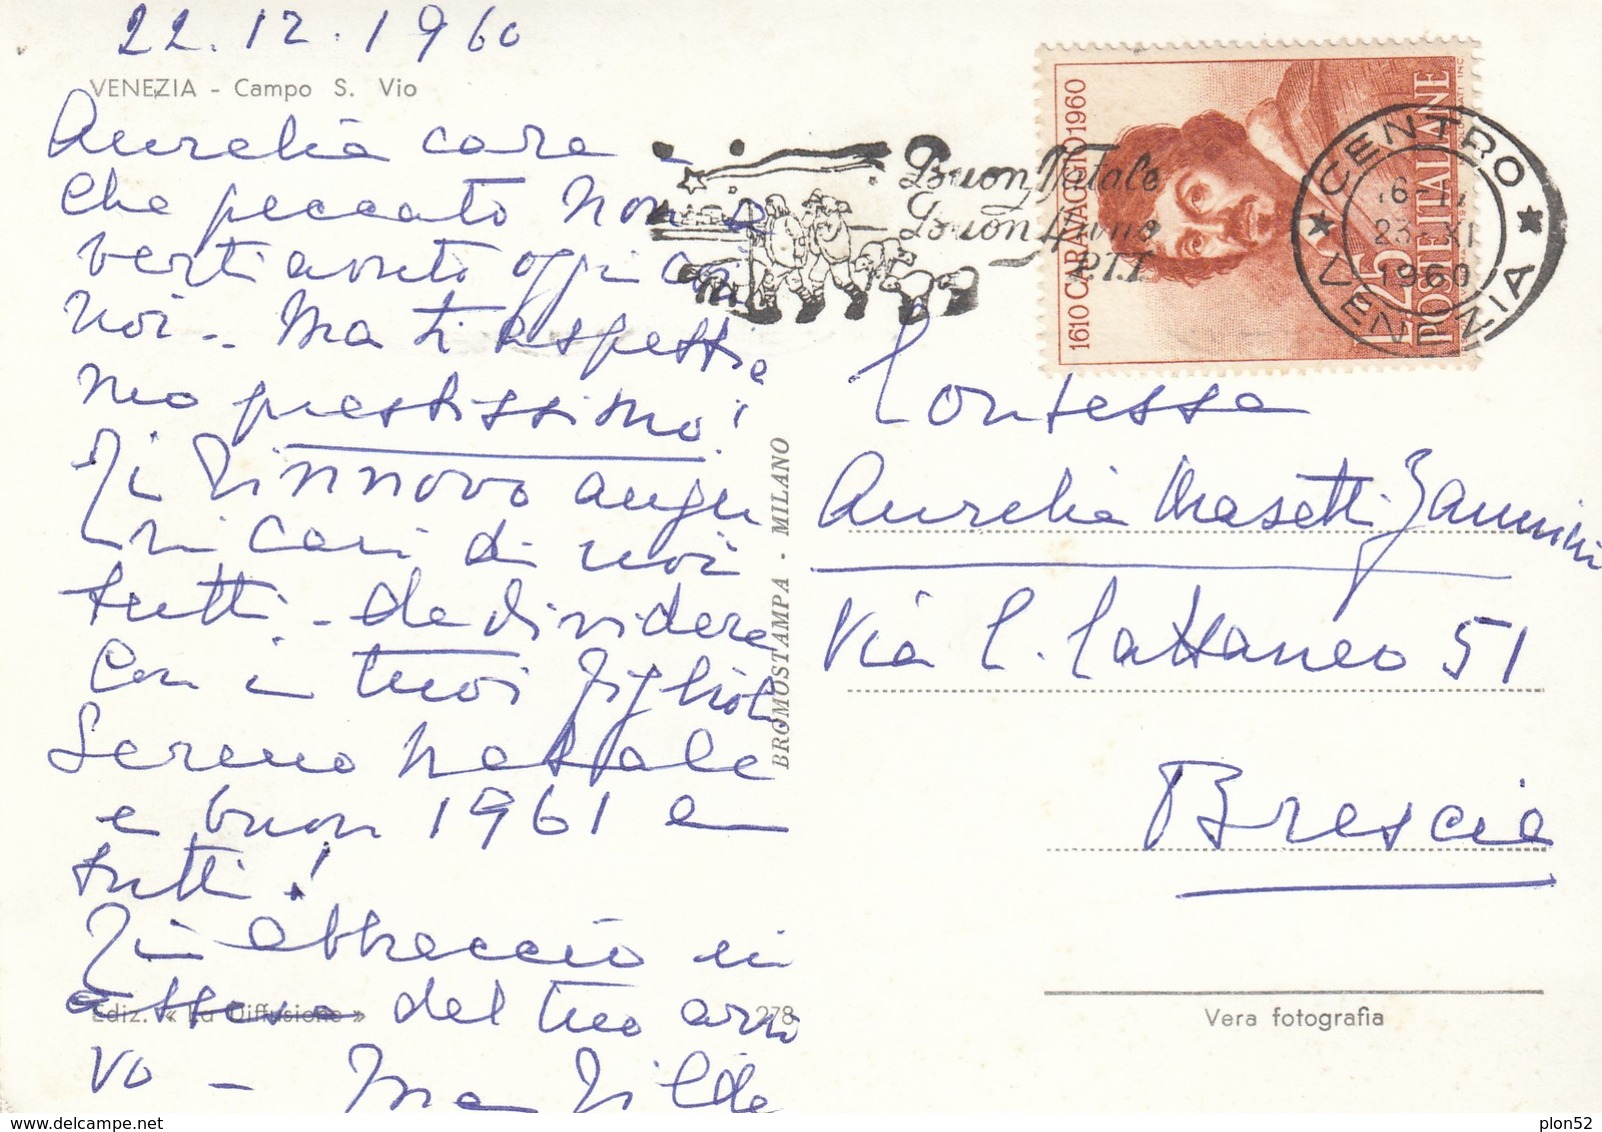 22.12.1960
VENEZIA - Campo S. Vio
Aurelia cara -
Che peccato non a
verti avuto oggi con
noi -. Ma ti aspettia
mo prestissimo!
Ti rinnovo augu
ri cari di noi
tutti. - da dividere
con i tuoi figlioli
Sereno Natale
e buon 1961 a
tutti!
Ti abbraccio in
attesa del tuo arri
vo - Matilde
Ediz. « La Diffusione » 278
BROMOSTAMPA - MILANO
Buon Natale
Buon Anno
P.T.T.
1610 CARAVAGGIO 1960
L. 25 POSTE ITALIANE
CENTRO
23 XI
1960
VENEZIA
Contessa
Aurelia Masetti Zannini
Via C. Cattaneo 51
Brescia
Vera fotografia
www.delcampe.net
plon52